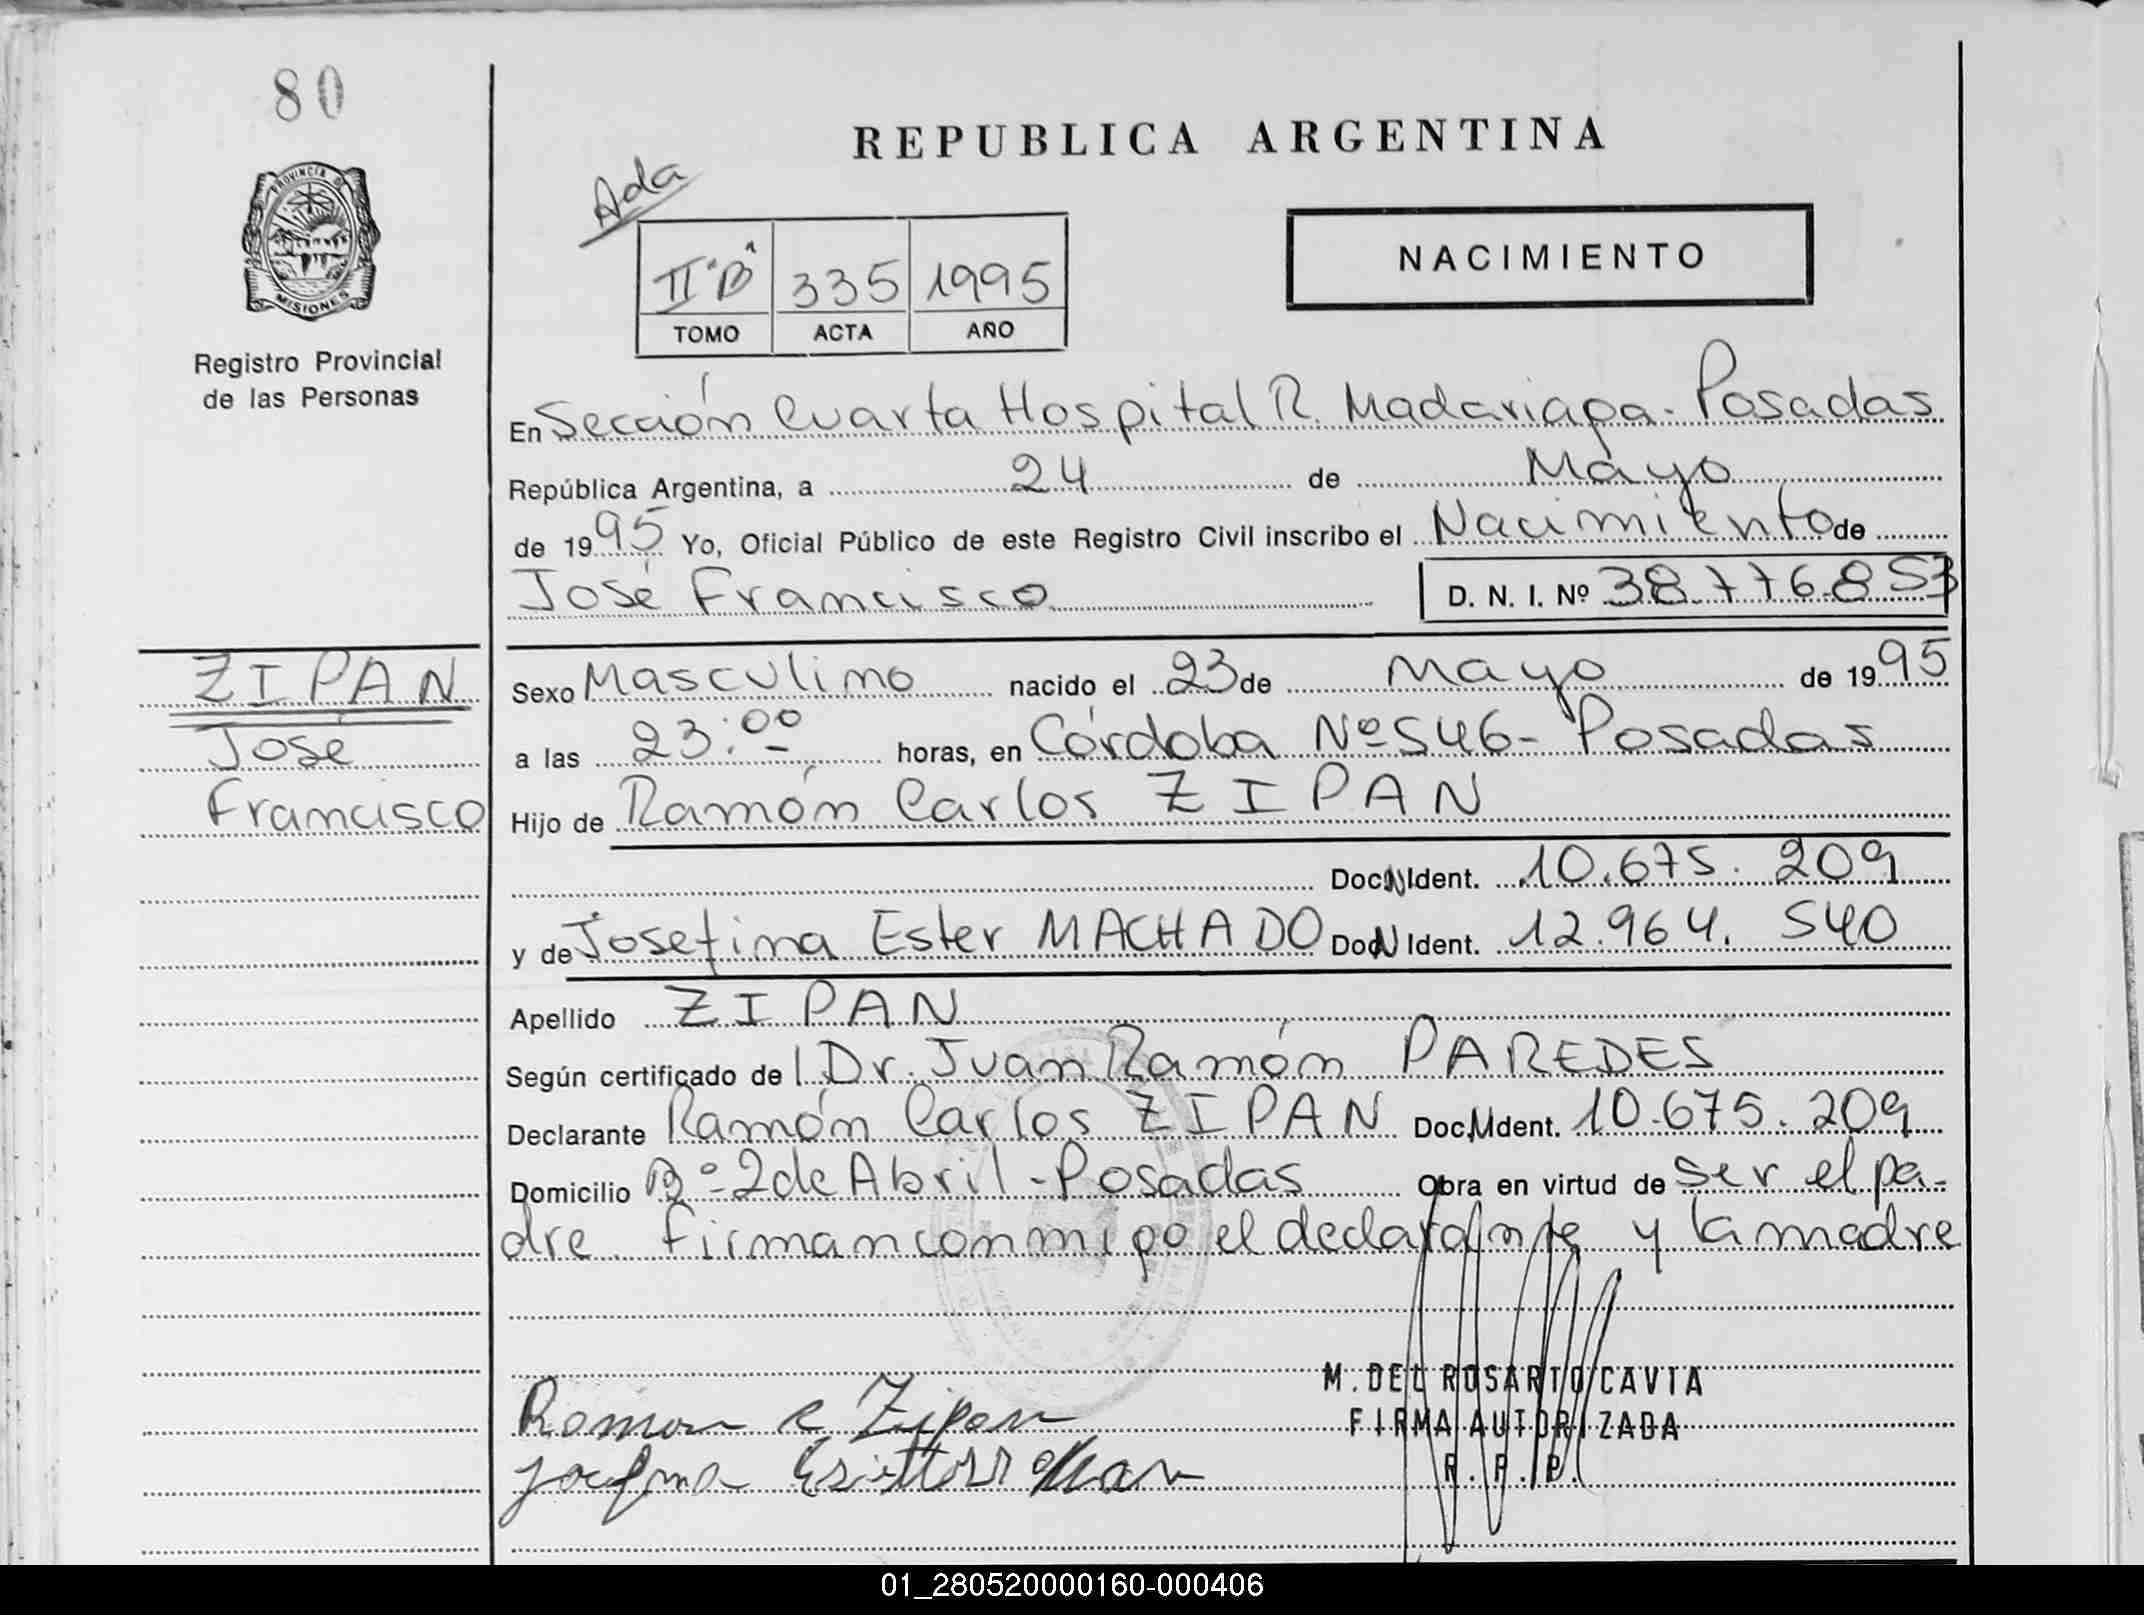 80
REPUBLICA ARGENTINA
Ada
PROVINCIA DE
MISIONES
NACIMIENTO
II "B" 335 1995
TOMO ACTA AÑO
Registro Provincial
de las Personas
En Sección Cuarta Hospital R. Madariaga - Posadas
República Argentina, a 24 de Mayo
de 1995 Yo, Oficial Público de este Registro Civil inscribo el Nacimiento de
José Francisco D. N. I. Nº 38776853
ZIPAN
José
Francisco
Sexo Masculino nacido el 23 de Mayo de 1995
a las 23:00 horas, en Córdoba Nº 546 - Posadas
Hijo de Ramón Carlos ZIPAN
Doc.N Ident. 10.675.209
y de Josefina Ester MACHADO Doc.N Ident. 12.964.540
Apellido ZIPAN
Según certificado de l Dr. Juan Ramón PAREDES
Declarante Ramón Carlos ZIPAN Doc.N Ident. 10.675.209
Domicilio Bº 2 de Abril - Posadas Obra en virtud de ser el pa-
dre. Firman conmigo el declarante y la madre
M. DEL ROSARIO CAVIA
FIRMA AUTORIZADA
R. P. P.
Ramon C Zipan
01_280520000160-000406